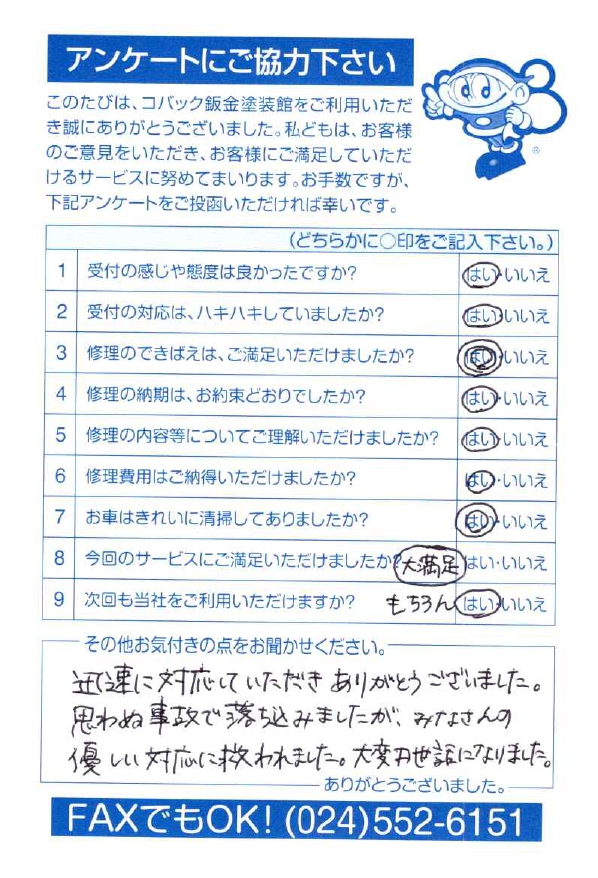 アンケートにご協力下さい
このたびは、コバック鈑金塗装館をご利用いただ
き誠にありがとうございました。私どもは、お客様
のご意見をいただき、お客様にご満足していただ
けるサービスに努めてまいります。お手数ですが、
下記アンケートをご投函いただければ幸いです。
®
(どちらかに○印をご記入下さい。)
1 受付の感じや態度は良かったですか? はい・いいえ
2 受付の対応は、ハキハキしていましたか? はい・いいえ
3 修理のできばえは、ご満足いただけましたか? はい・いいえ
4 修理の納期は、お約束どおりでしたか? はい・いいえ
5 修理の内容等についてご理解いただけましたか? はい・いいえ
6 修理費用はご納得いただけましたか? はい・いいえ
7 お車はきれいに清掃してありましたか? はい・いいえ
8 今回のサービスにご満足いただけましたか? 大満足 はい・いいえ
9 次回も当社をご利用いただけますか? もちろん はい・いいえ
その他お気付きの点をお聞かせください。
迅速に対応していただきありがとうございました。
思わぬ事故で落ち込みましたが、みなさんの
優しい対応に救われました。大変お世話になりました。
ありがとうございました。
FAXでもOK! (024)552-6151